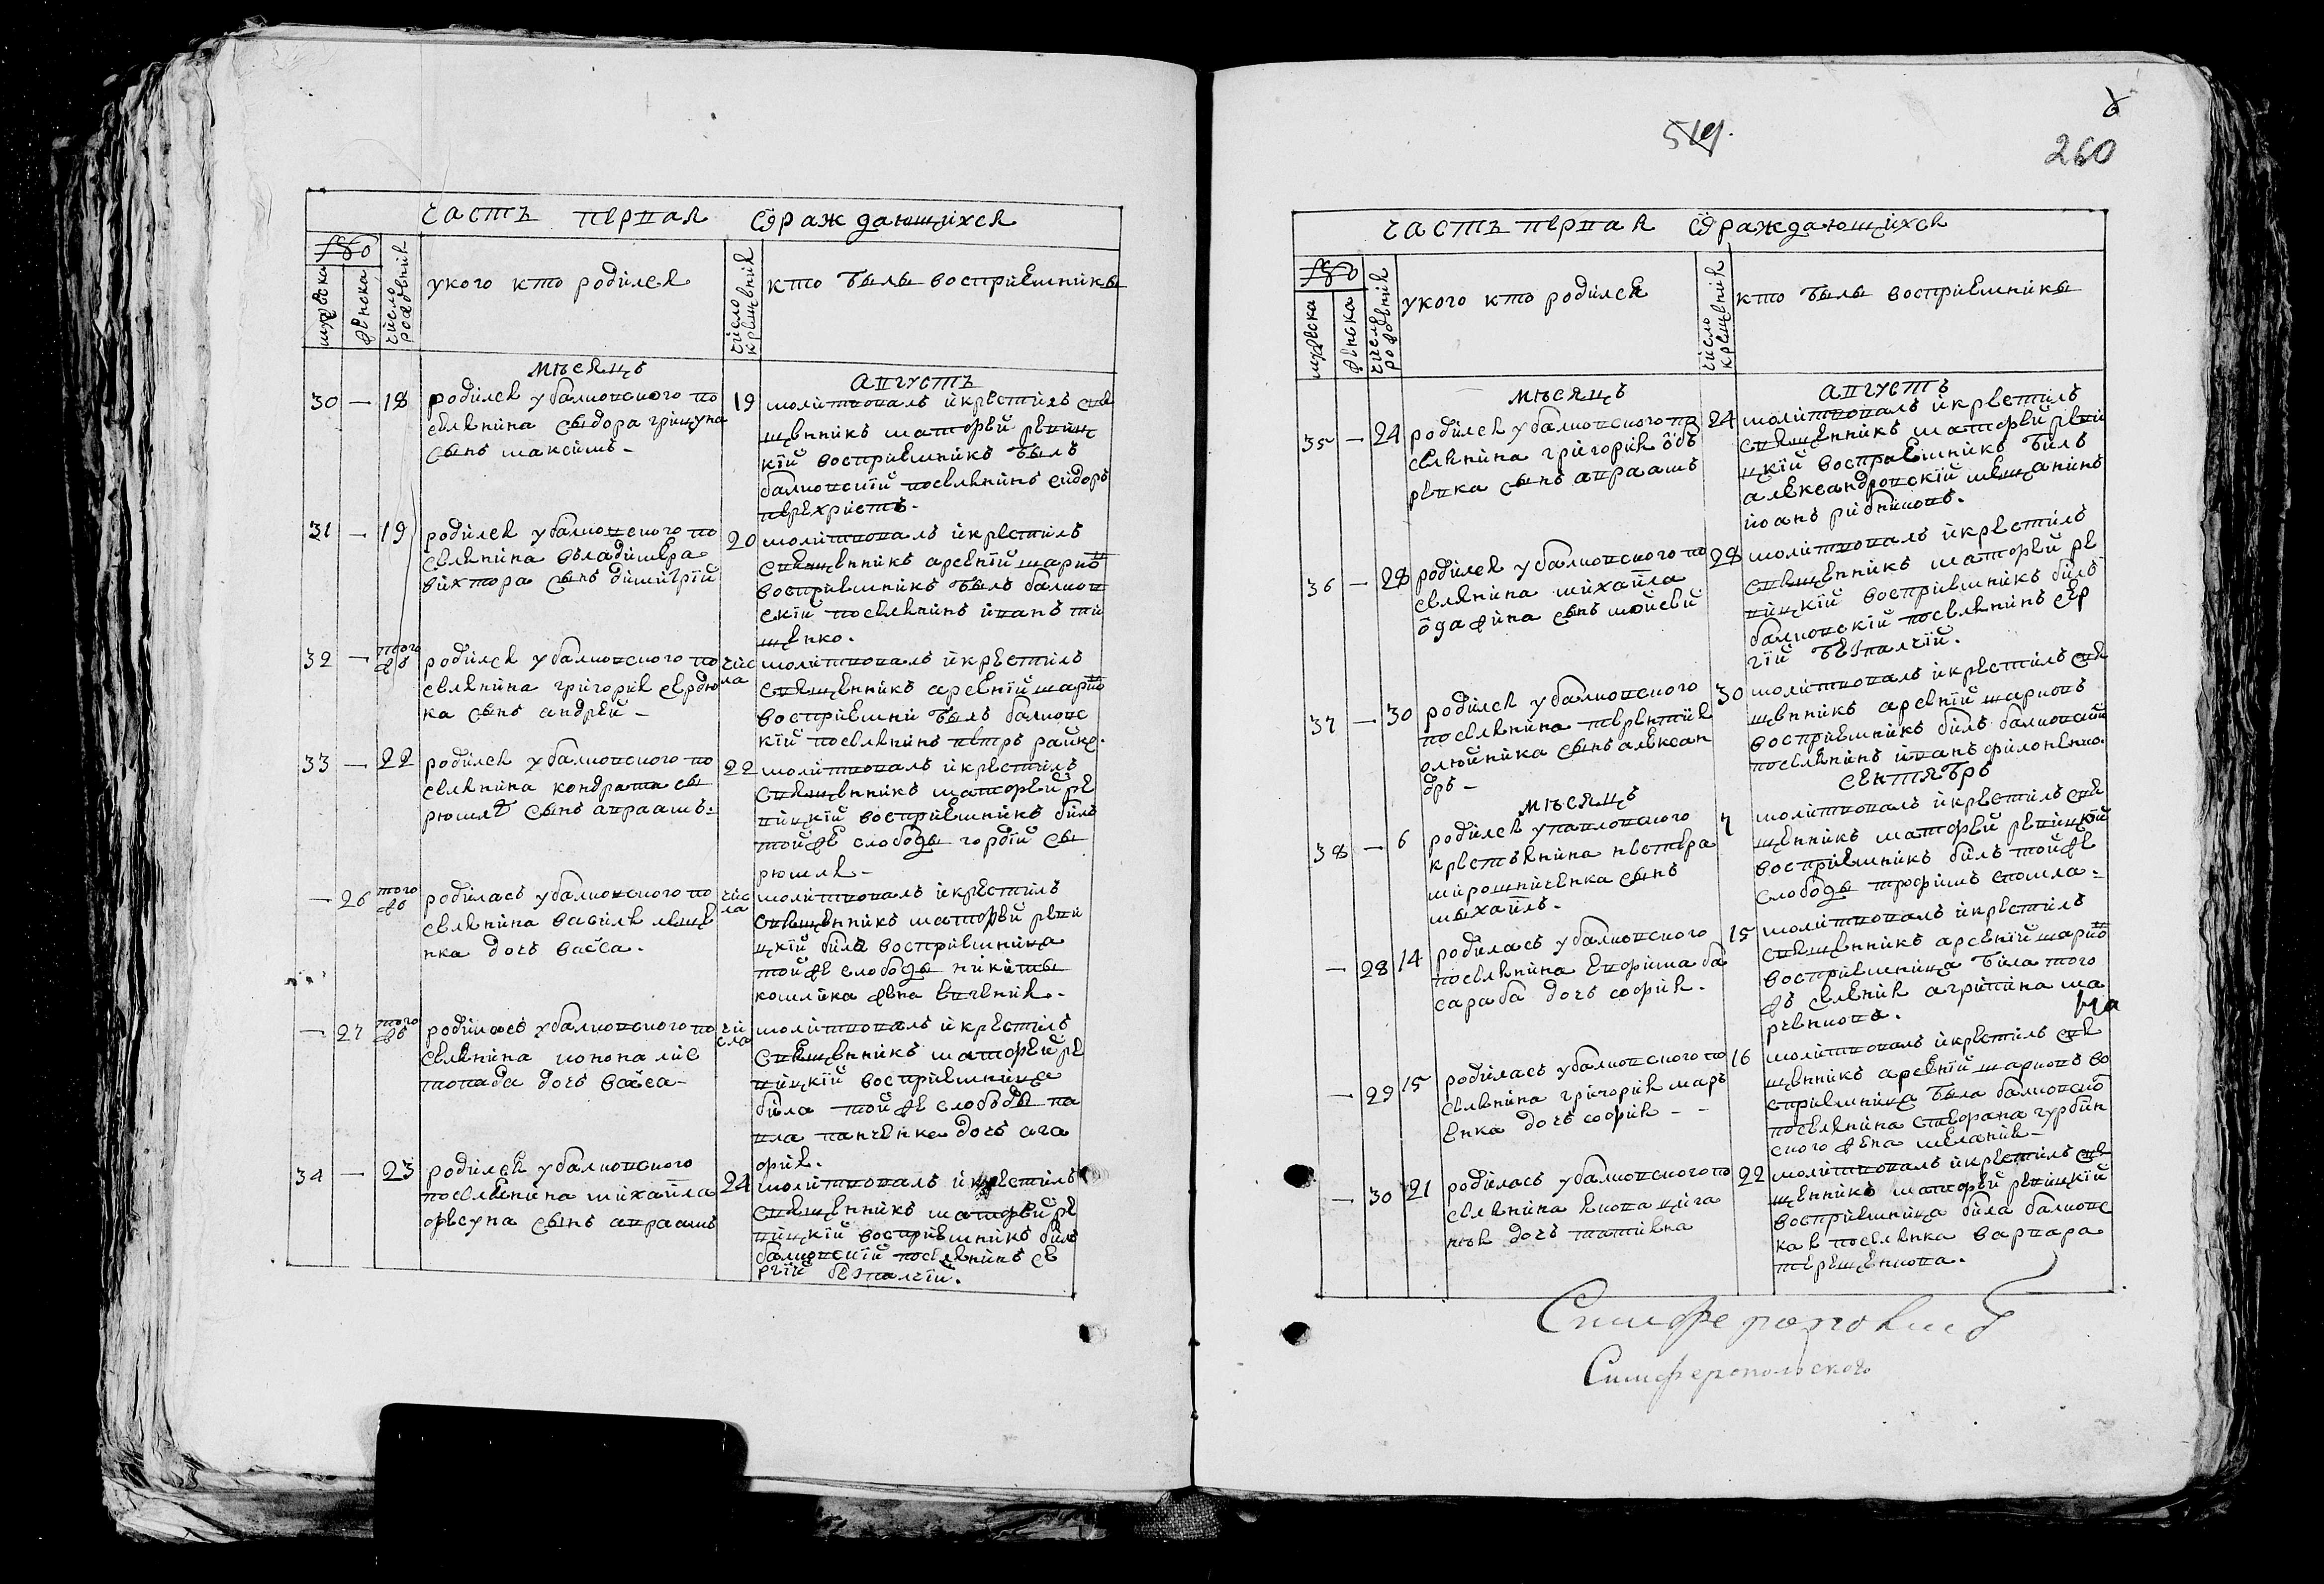 часть первая ѡраждающихся
мужеска
женска
число рождения
укого кто родился
число крещения
кто были восприемники
мѣсяцъ
августъ
30 — 18
родился убалковского по
селянина сыдора грицуна
сынъ максимъ -
19
молитвовалъ икрестилъ свя
щенникъ матфей ревиц
кїй восприемникъ былъ
балковскїй поселянинъ сидоръ
перехристъ.
31 — 19
родился убалковского по
селянина владимера
вихтора сынъ димитрїй
20
молитвовалъ икрестилъ
священникъ арсенїй марко
восприемникъ былъ балков
скїй поселянинъ иванъ ти
щенко.
32 — того жъ
родился убалковского по
селянина григория сердю
ка сынъ андрей -
числа
молитвовалъ икрестилъ
священникъ арсенїй марко
восприемни былъ балковс
кїй поселянинъ петръ райко.
33 — 22
родился убалковского по
селянина кондрата сы
сынъ авраамъ.
22
молитвовалъ икрестилъ
священникъ матфей ре
вицкїй восприемникъ билъ
тойже слободы гордїй сы
— 26 того жъ
родилась убалковского по
селянина василя леще
нка дочь васса.
числа
молитвовалъ икрестилъ
священникъ матфей реви
цкїй била восприемница
тойже слободы никиты
жена евгения.
— 27 того жъ
родилась убалковского по
селянина конона лис
топада дочь васса -
числа
молитвовалъ икрестилъ
священникъ матфей ре
вицкїй восприемница
била тойже слободы па
вла панченка дочь ага
фия.
34 — 23
родился убалковского
поселянина михаила
сынъ авраамъ
24
молитвовалъ икрестилъ
священникъ матфей ре
вицкїй восприемникъ билъ
балковскїй поселянинъ се
ргїй безпалчїй.
519.
260
часть первая ѡраждающихся
мужеска
женска
число рождения
укого кто родился
число крещения
кто были восприемники
мѣсяцъ
августъ
35 — 24
родился убалковского по
селянина григория
сынъ авраамъ
24
молитвовалъ икрестилъ
священникъ матфей реви
цкїй восприемникъ билъ
александровскїй мещанинъ
иоанъ
36 — 28
родился убалковского по
селянина михаила
сынъ мойсей
28
молитвовалъ икрестилъ
священникъ матфей ре
вицкїй восприемникъ билъ
балковскїй поселянинъ сер
гїй безпалчїй.
37 — 30
родился убалковского
поселянина терентия
олюйника сынъ алексан
дръ -
30
молитвовалъ икрестилъ свя
щенникъ арсенїй марковъ
восприемникъ билъ балковскїй
поселянинъ иванъ филоненко.
мѣсяцъ
сентябрь
38 — 6
родился упавловского
крестьянина нестера
мирошниченка сынъ
михаилъ.
7
молитвовалъ икрестилъ свя
щенникъ матфей ревицкїй
восприемникъ билъ тойже
слободы трофимъ
— 28 14
родилась убалковского
поселянина евфима ба
сараба дочь софия.
15
молитвовалъ икрестилъ
священникъ арсенїй марко
восприемница била того
жъ селения агрипина ма
рченкова.
— 29 15
родилась убалковского по
селянина григория марч
енка дочь софия - -
16
молитвовалъ икрестилъ свя
щенникъ арсенїй марковъ во
сприемница была балковско
поселянина стефана гурбин
ского жена мелания -
— 30 21
родилась убалковского по
селянина якова цига
нюк дочь татияна
22
молитвовалъ икрестилъ свя
щенникъ матфей ревицкїй
восприемница била балковс
кая поселянка варвара
терещенкова.
Симферопольского